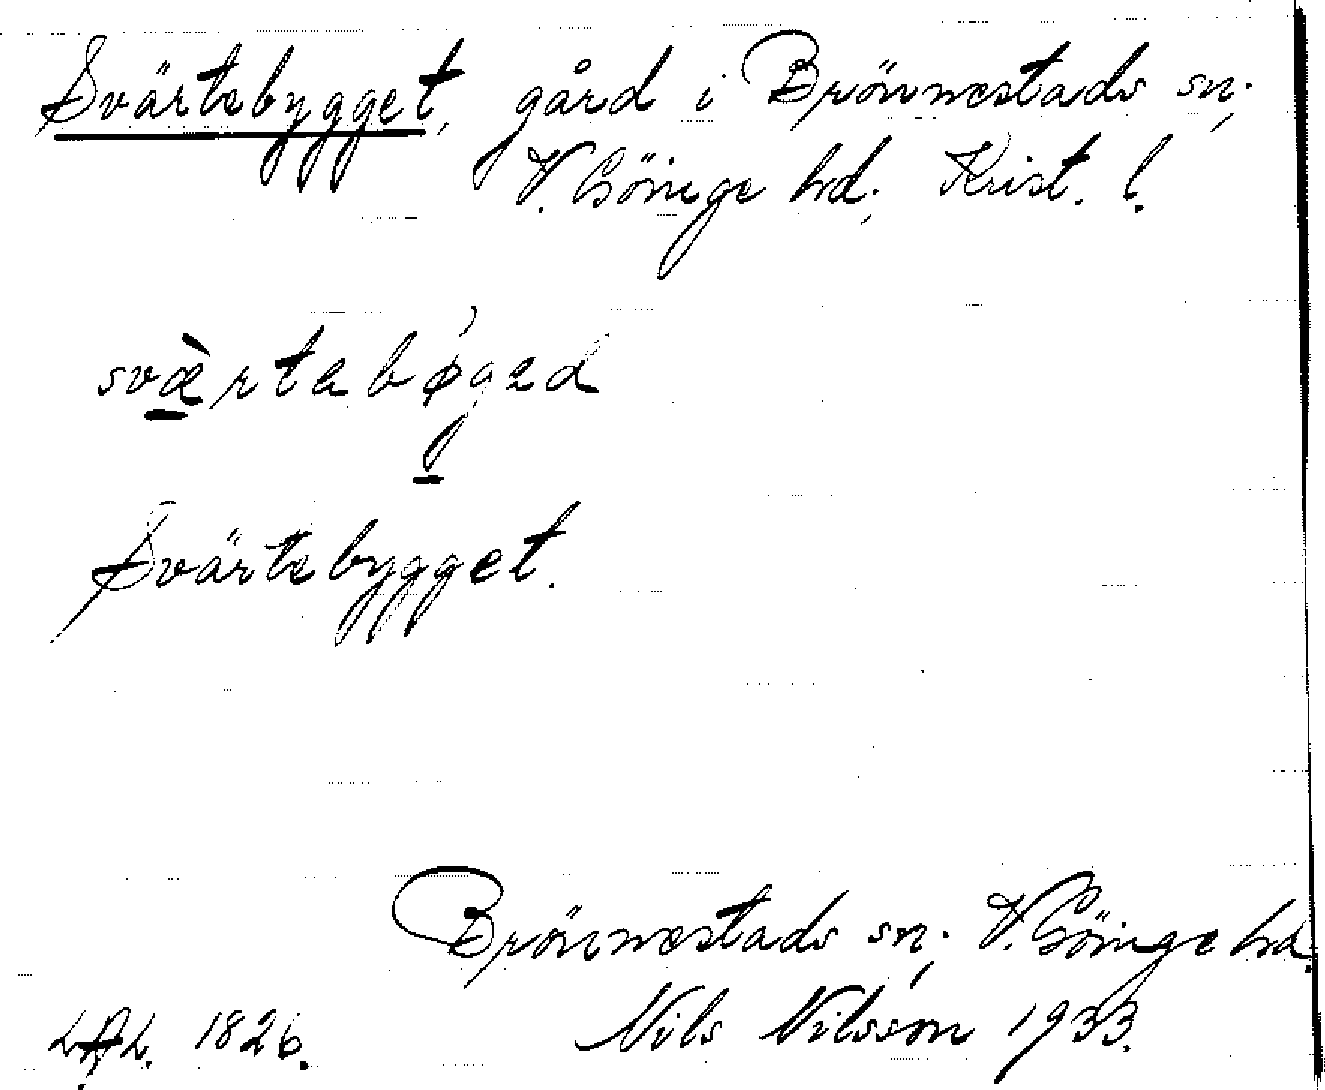 Svärtebygget, gård i Brönnestads sn;
V. Göinge hd; Krist. l.
svæ̀rtabøgəd
Svärtebygget.
Brönnestads sn; V. Göinge hd.
LAL. 1826. Nils Nilsson 1933.